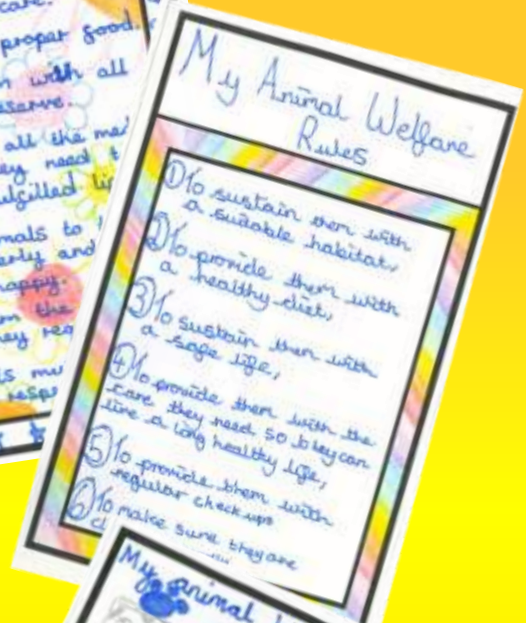 care.
proper good.
with all
all the
they need
ulfilled
mals to
erly and
happy.
the
they
is
My Animal Welfare
Rules
① To sustain them with
a suitable habitat,
② To provide them with
a healthy diet,
③ To sustain them with
a safe life,
④ To provide them with the
care they need so they can
live a long healthy life,
⑤ To provide them with
regular check ups
⑥ To make sure they are
My animal